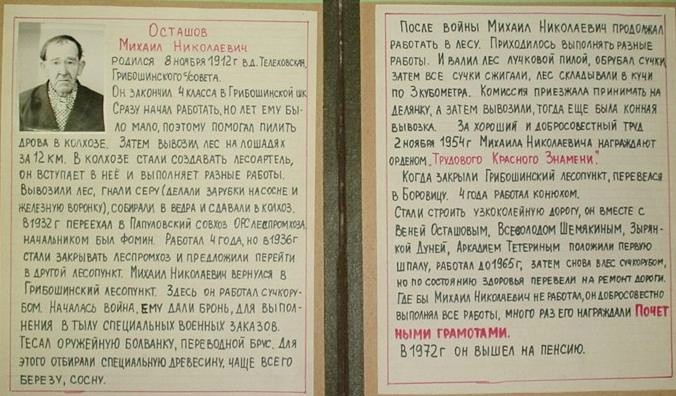 Осташов
Михаил Николаевич
родился 8 ноября 1912 г в д. Телеховская,
Грибошинского с/совета.
Он закончил 4 класса в Грибошинской шк.
Сразу начал работать, но лет ему бы-
ло мало, поэтому помогал пилить
дрова в колхозе. Затем вывозил лес на лошадях
за 12 км. В колхозе стали создавать лесоартель,
он вступает в неё и выполняет разные работы.
Вывозили лес, гнали серу (делали зарубки на сосне и
железную воронку), собирали в ведра и сдавали в колхоз.
В 1932 г переехал в Папуловский совхоз ОРС леспромхоза,
начальником был Фомин. Работал 4 года, но в 1936 г
стали закрывать леспромхоз и предложили перейти
в другой лесопункт. Михаил Николаевич вернулся в
Грибошинский лесопункт. Здесь он работал сучкору-
бом. Началась война, ему дали бронь, для выпол-
нения в тылу специальных военных заказов.
Тесал оружейную болванку, переводной брус. Для
этого отбирали специальную древесину, чаще всего
березу, сосну.
После войны Михаил Николаевич продолжал
работать в лесу. Приходилось выполнять разные
работы. И валил лес лучковой пилой, обрубал сучки,
затем все сучки сжигали, лес складывали в кучи
по 3 кубометра. Комиссия приезжала принимать на
делянку, а затем вывозили, тогда еще была конная
вывозка. За хороший и добросовестный труд
2 ноября 1954 г Михаила Николаевича награждают
орденом „Трудового Красного Знамени".
Когда закрыли Грибошинский лесопункт, перевелся
в Боровицу. 4 года работал конюхом.
Стали строить узкоколейную дорогу, он вместе с
Веней Осташовым, Всеволодом Шемякиным, Зырян-
кой Дуней, Аркадием Тетериным положили первую
шпалу, работал до 1965 г, затем снова в лес сучкорубом,
но по состоянию здоровья перевели на ремонт дороги.
Где бы Михаил Николаевич не работал, он добросовестно
выполнял все работы, много раз его награждали Почет
ными грамотами.
В 1972 г он вышел на пенсию.